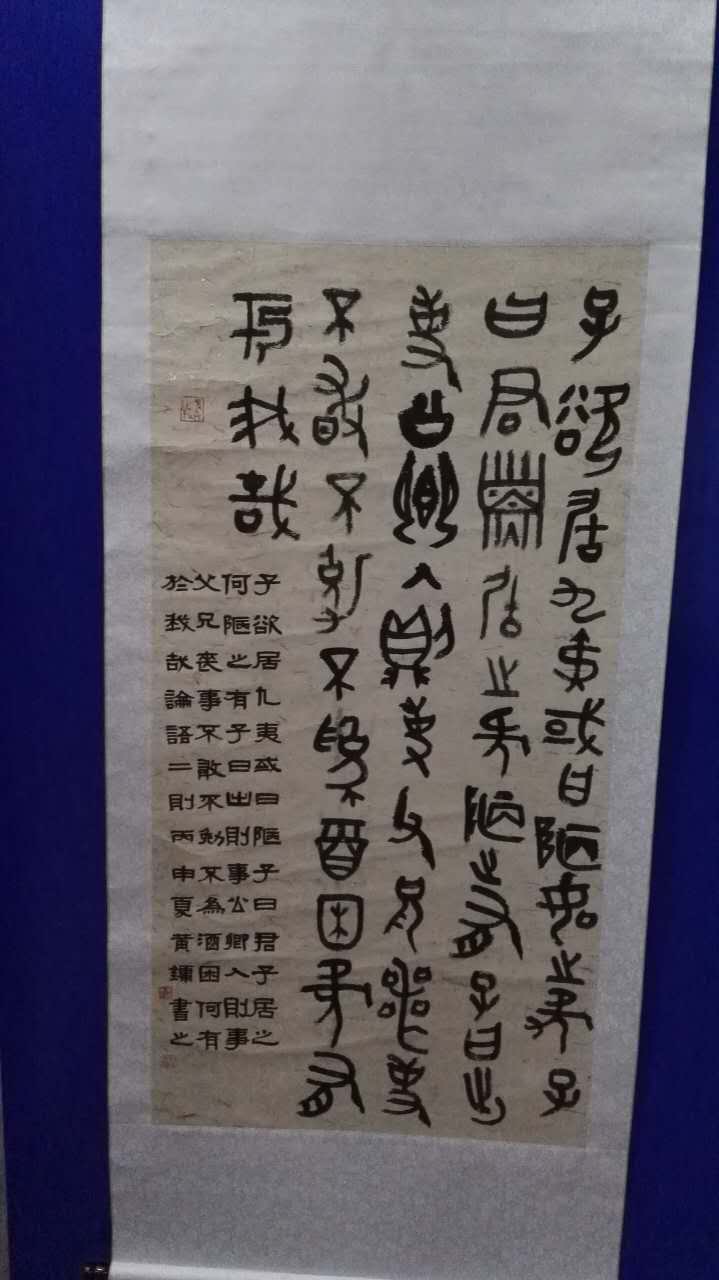 子欲居九夷或曰陋如之何子
曰君子居之何陋之有子曰出
事公卿入則事父兄喪事
不敢不勉不為酒困何有
於我哉
子欲居九夷或曰陋子曰君子居之
何陋之有子曰出則事公卿入則事
父兄喪事不敢不勉不為酒困何有
於我哉論語二則丙申夏黃鏞書之